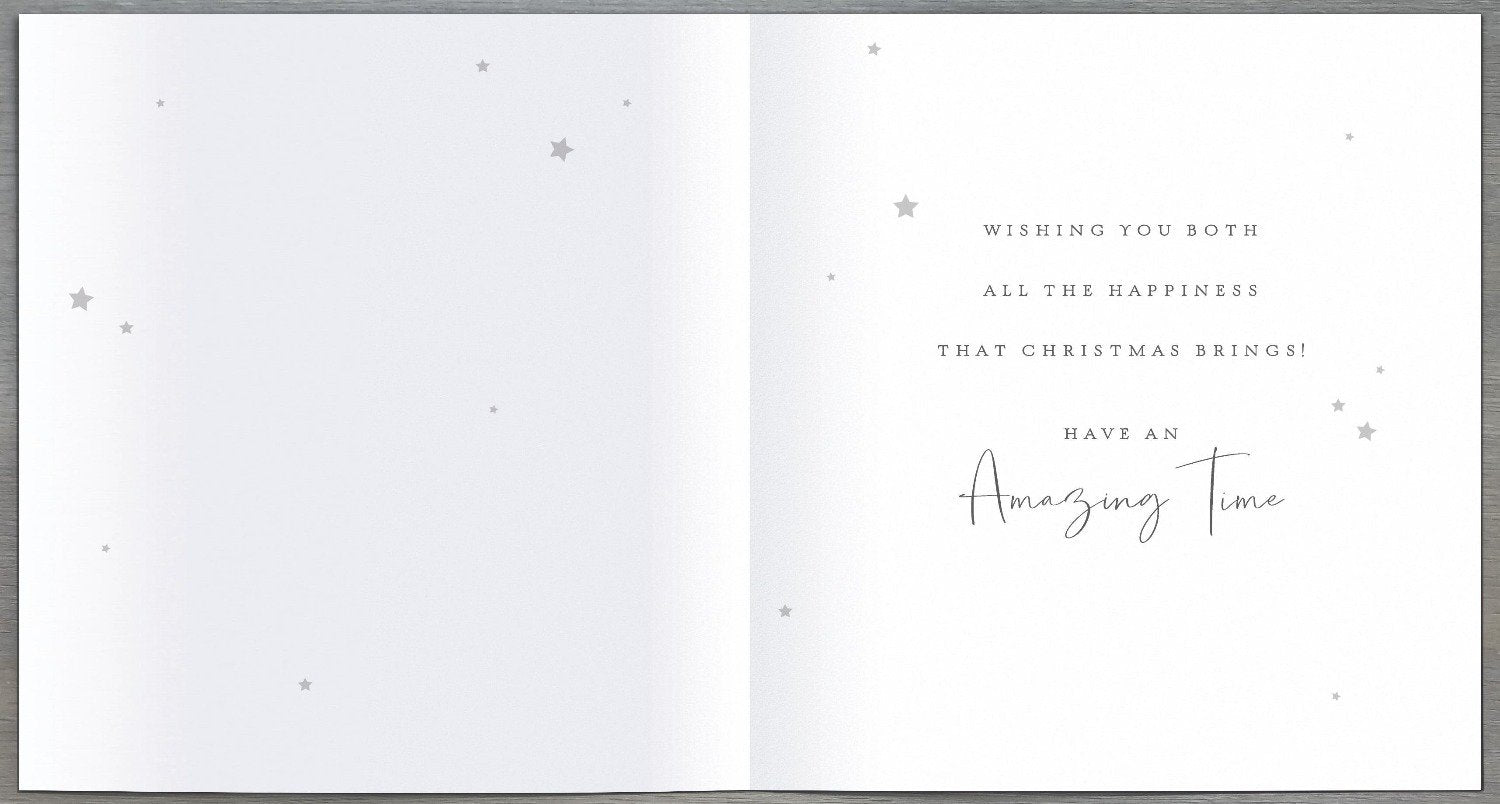 WISHING YOU BOTH
ALL THE HAPPINESS
THAT CHRISTMAS BRINGS!
HAVE AN
Amazing Time